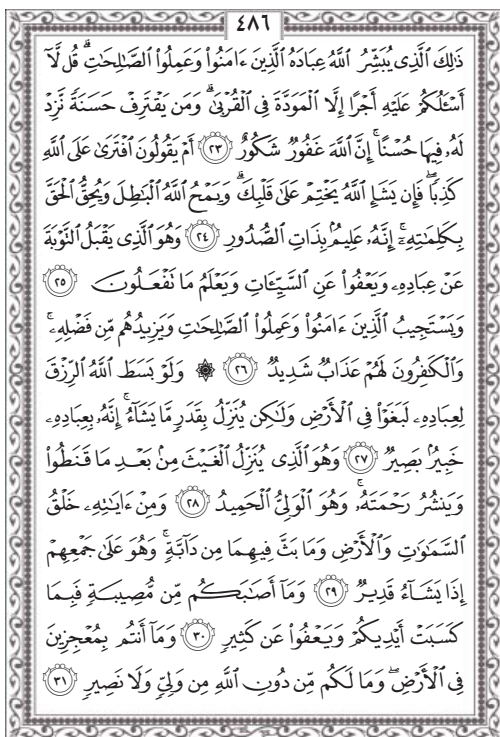 ٤٨٦
ذَٰلِكَ ٱلَّذِى يُبَشِّرُ ٱللَّهُ عِبَادَهُ ٱلَّذِينَ ءَامَنُوا۟ وَعَمِلُوا۟ ٱلصَّٰلِحَٰتِ ۗ قُل لَّآ
أَسْـَٔلُكُمْ عَلَيْهِ أَجْرًا إِلَّا ٱلْمَوَدَّةَ فِى ٱلْقُرْبَىٰ ۗ وَمَن يَقْتَرِفْ حَسَنَةً نَّزِدْ
لَهُۥ فِيهَا حُسْنًا ۚ إِنَّ ٱللَّهَ غَفُورٌ شَكُورٌ ٢٣ أَمْ يَقُولُونَ ٱفْتَرَىٰ عَلَى ٱللَّهِ
كَذِبًا ۖ فَإِن يَشَإِ ٱللَّهُ يَخْتِمْ عَلَىٰ قَلْبِكَ ۗ وَيَمْحُ ٱللَّهُ ٱلْبَٰطِلَ وَيُحِقُّ ٱلْحَقَّ
بِكَلِمَٰتِهِۦٓ ۚ إِنَّهُۥ عَلِيمٌۢ بِذَاتِ ٱلصُّدُورِ ٢٤ وَهُوَ ٱلَّذِى يَقْبَلُ ٱلتَّوْبَةَ
عَنْ عِبَادِهِۦ وَيَعْفُوا۟ عَنِ ٱلسَّيِّـَٔاتِ وَيَعْلَمُ مَا تَفْعَلُونَ ٢٥
وَيَسْتَجِيبُ ٱلَّذِينَ ءَامَنُوا۟ وَعَمِلُوا۟ ٱلصَّٰلِحَٰتِ وَيَزِيدُهُم مِّن فَضْلِهِۦ ۚ
وَٱلْكَٰفِرُونَ لَهُمْ عَذَابٌ شَدِيدٌ ٢٦ ۞ وَلَوْ بَسَطَ ٱللَّهُ ٱلرِّزْقَ
لِعِبَادِهِۦ لَبَغَوْا۟ فِى ٱلْأَرْضِ وَلَٰكِن يُنَزِّلُ بِقَدَرٍ مَّا يَشَآءُ ۚ إِنَّهُۥ بِعِبَادِهِۦ
خَبِيرٌۢ بَصِيرٌ ٢٧ وَهُوَ ٱلَّذِى يُنَزِّلُ ٱلْغَيْثَ مِنۢ بَعْدِ مَا قَنَطُوا۟
وَيَنشُرُ رَحْمَتَهُۥ ۚ وَهُوَ ٱلْوَلِىُّ ٱلْحَمِيدُ ٢٨ وَمِنْ ءَايَٰتِهِۦ خَلْقُ
ٱلسَّمَٰوَٰتِ وَٱلْأَرْضِ وَمَا بَثَّ فِيهِمَا مِن دَآبَّةٍ ۚ وَهُوَ عَلَىٰ جَمْعِهِمْ
إِذَا يَشَآءُ قَدِيرٌ ٢٩ وَمَآ أَصَٰبَكُم مِّن مُّصِيبَةٍ فَبِمَا
كَسَبَتْ أَيْدِيكُمْ وَيَعْفُوا۟ عَن كَثِيرٍ ٣٠ وَمَآ أَنتُم بِمُعْجِزِينَ
فِى ٱلْأَرْضِ ۖ وَمَا لَكُم مِّن دُونِ ٱللَّهِ مِن وَلِىٍّ وَلَا نَصِيرٍ ٣١